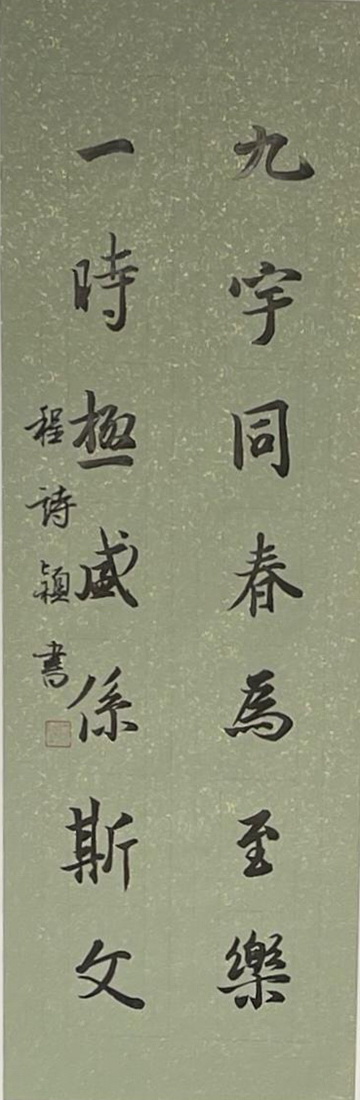 九宇同春為至樂
一時極盛係斯文
程詩穎書